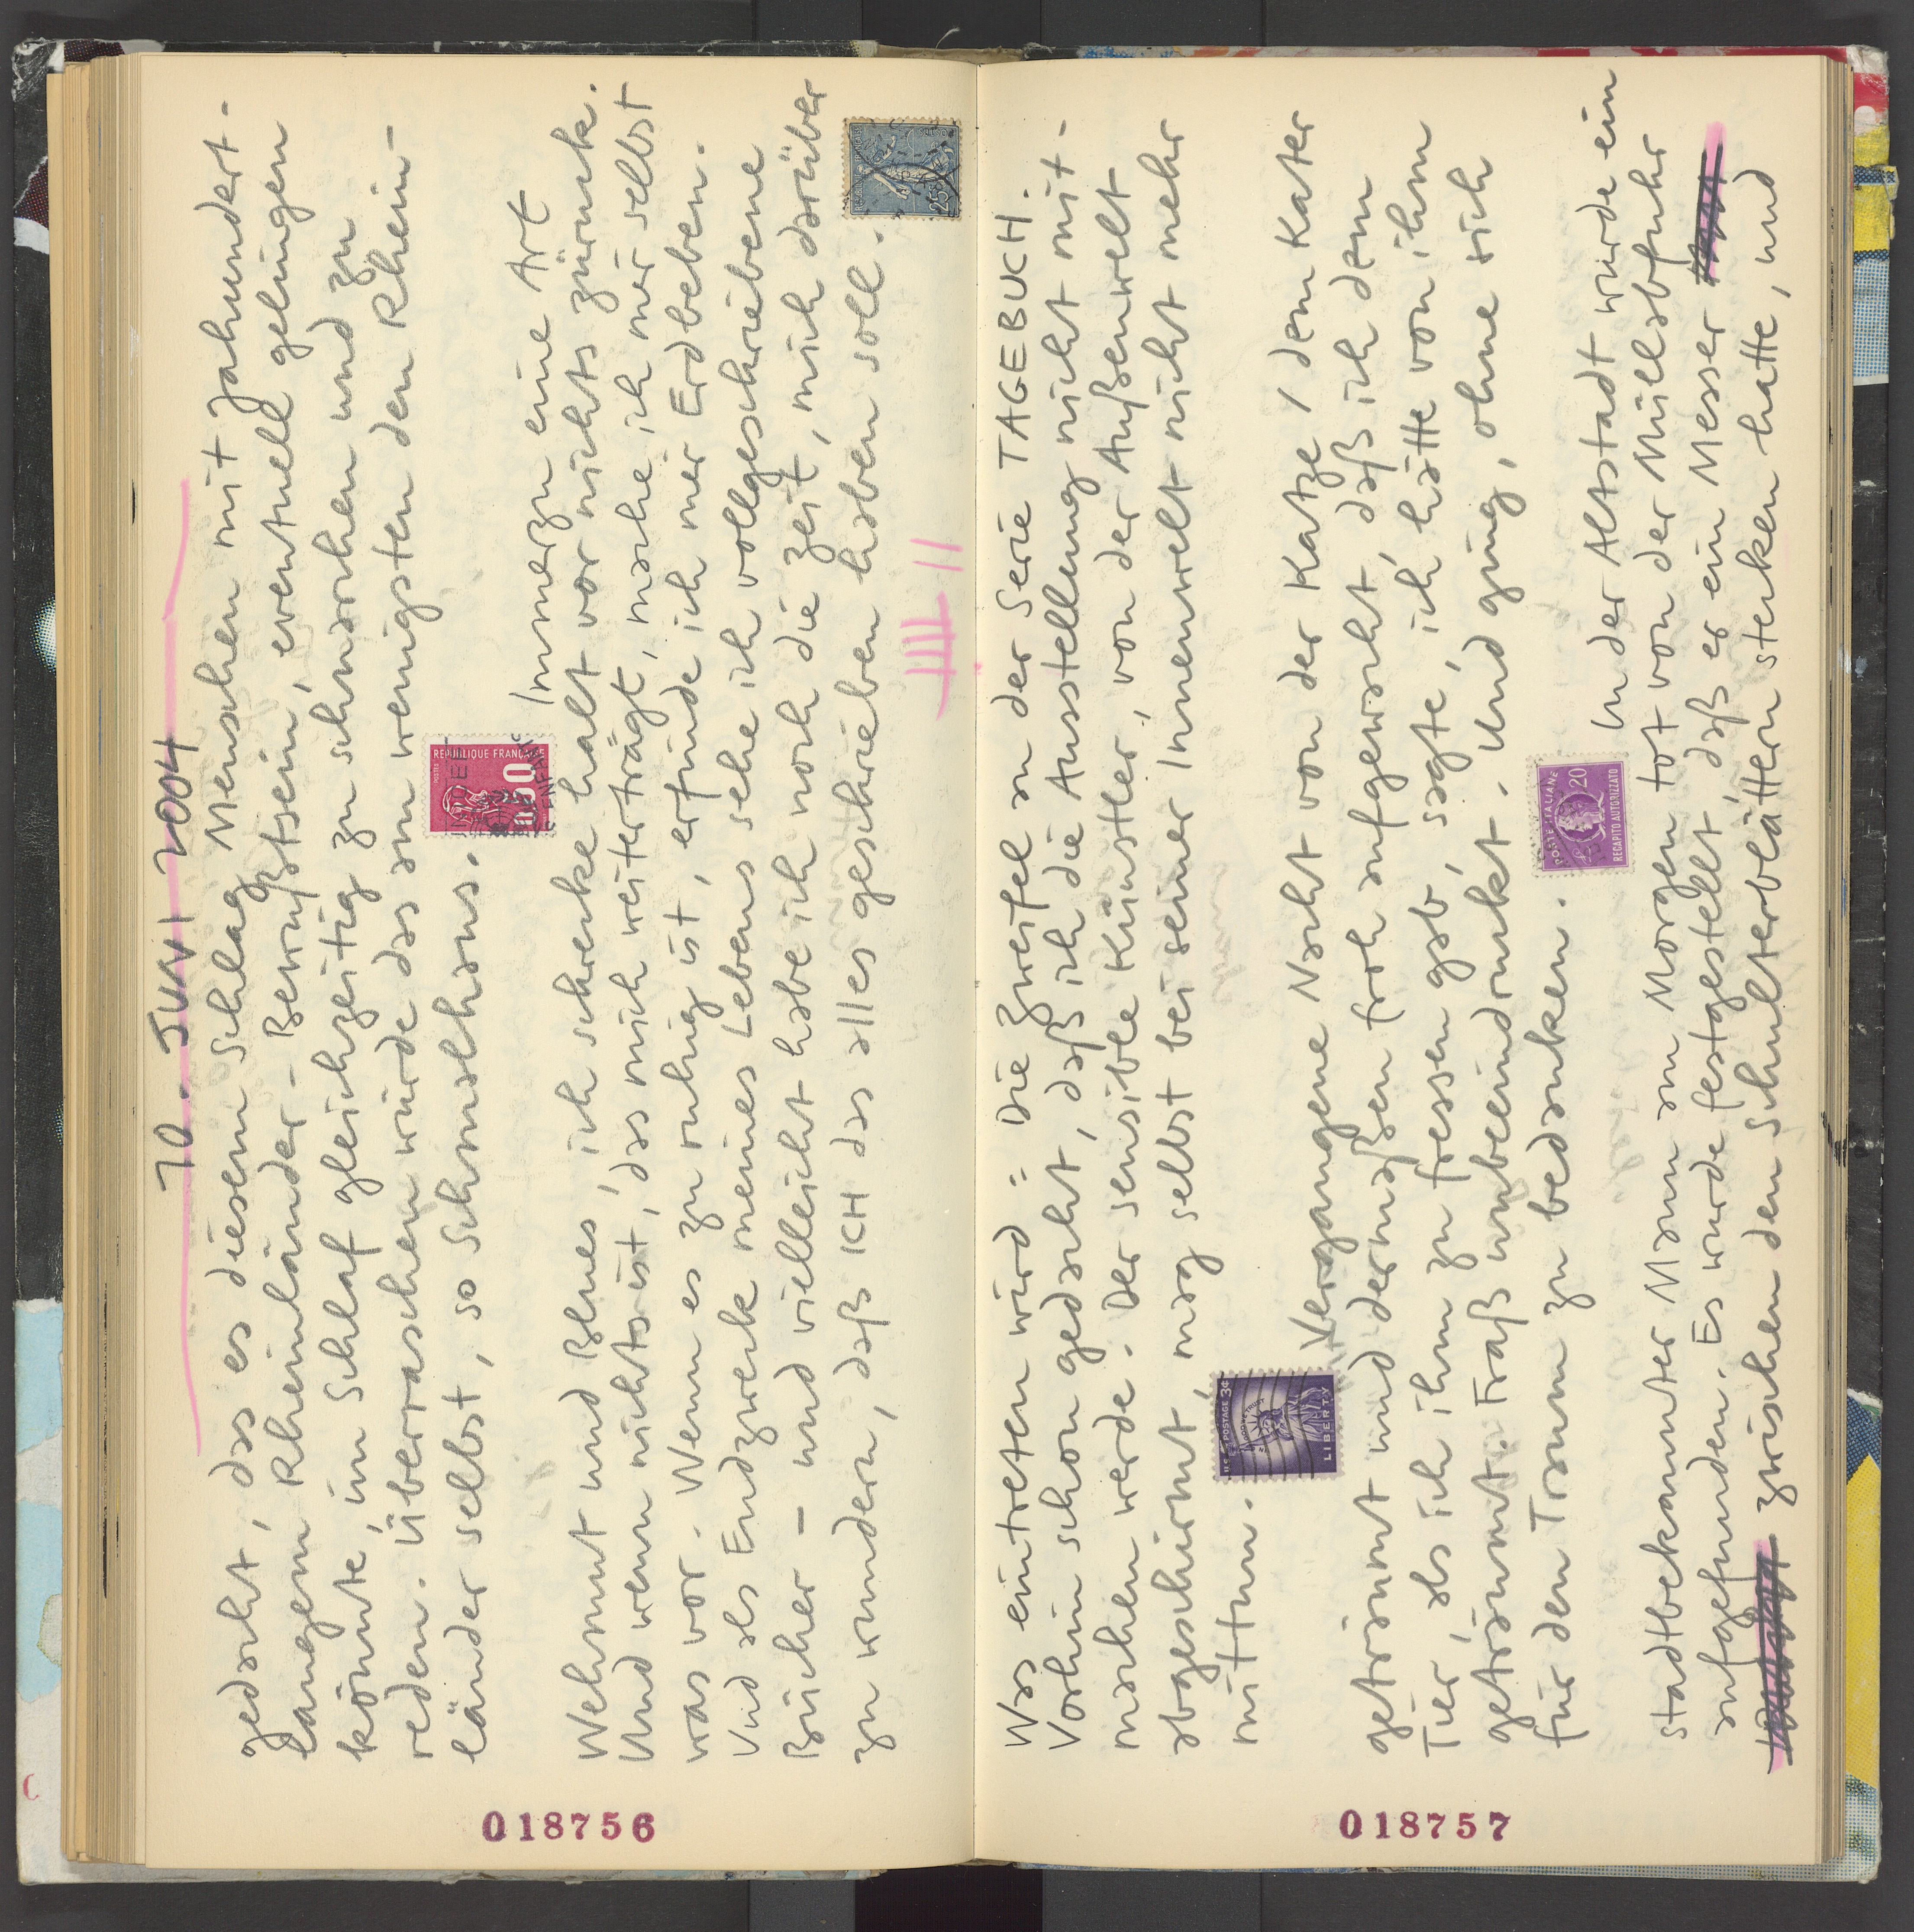 10. JUNI 2004
gedacht, das es diesem Schlag Menschen mit jahundert-
langem Rheinländer-Bewußtsein, eventuell gelingen
könnte, im Schlaf gleichzeitig zu schnarchen und zu
reden. Überraschen würde das am wenigsten den Rhein-
länder selbst, so Schmalhans.
REPUBLIQUE FRANÇAISE
POSTES
0,50
Immerzu eine Art
Wehmut und Blues, ich schrecke halt vor nichts zürruck.
Und wenn nichts ist, das mich weiterträgt, mache ich mir selbst
was vor. Wenn es zu ruhig ist, erfinde ich mir Erdbeben.
Und als Endzweck meines Lebens sehe ich vollgeschriebene
Bücher – und vielleicht habe ich noch die Zeit, mich darüber
zu wundern, daß ICH das alles geschrieben haben soll.
25c
018756
Was eintreten wird = Die Zweifel an der Serie TAGEBUCH.
Vorhin schon gedacht, daß ich die Ausstellung nicht mit-
machen werde. Der sensible Künstler, von der Außenwelt
abgeschirmt, mag selbst bei seiner Innenwelt nicht mehr
mittun.
U.S. POSTAGE 3¢
IN GOD WE TRUST
LIBERTY
Vergangene Nacht von der Katze / dem Kater
geträumt und dermaßen froh aufgewacht, daß ich dem
Tier, als ich ihm zu fressen gab, sagte, ich hätte von ihm
geträumt. Fraß unbeeindruckt. Und ging, ohne sich
für den Traum zu bedanken.
POSTE ITALIANE
20
RECAPITO AUTORIZZATO
In der Altstadt wurde ein
stadtbekannter Mann am Morgen tot von der Müllabfuhr
aufgefunden. Es wurde festgestellt, daß er ein Messer
zwischen den Schulterblättern stecken hatte, und
018757